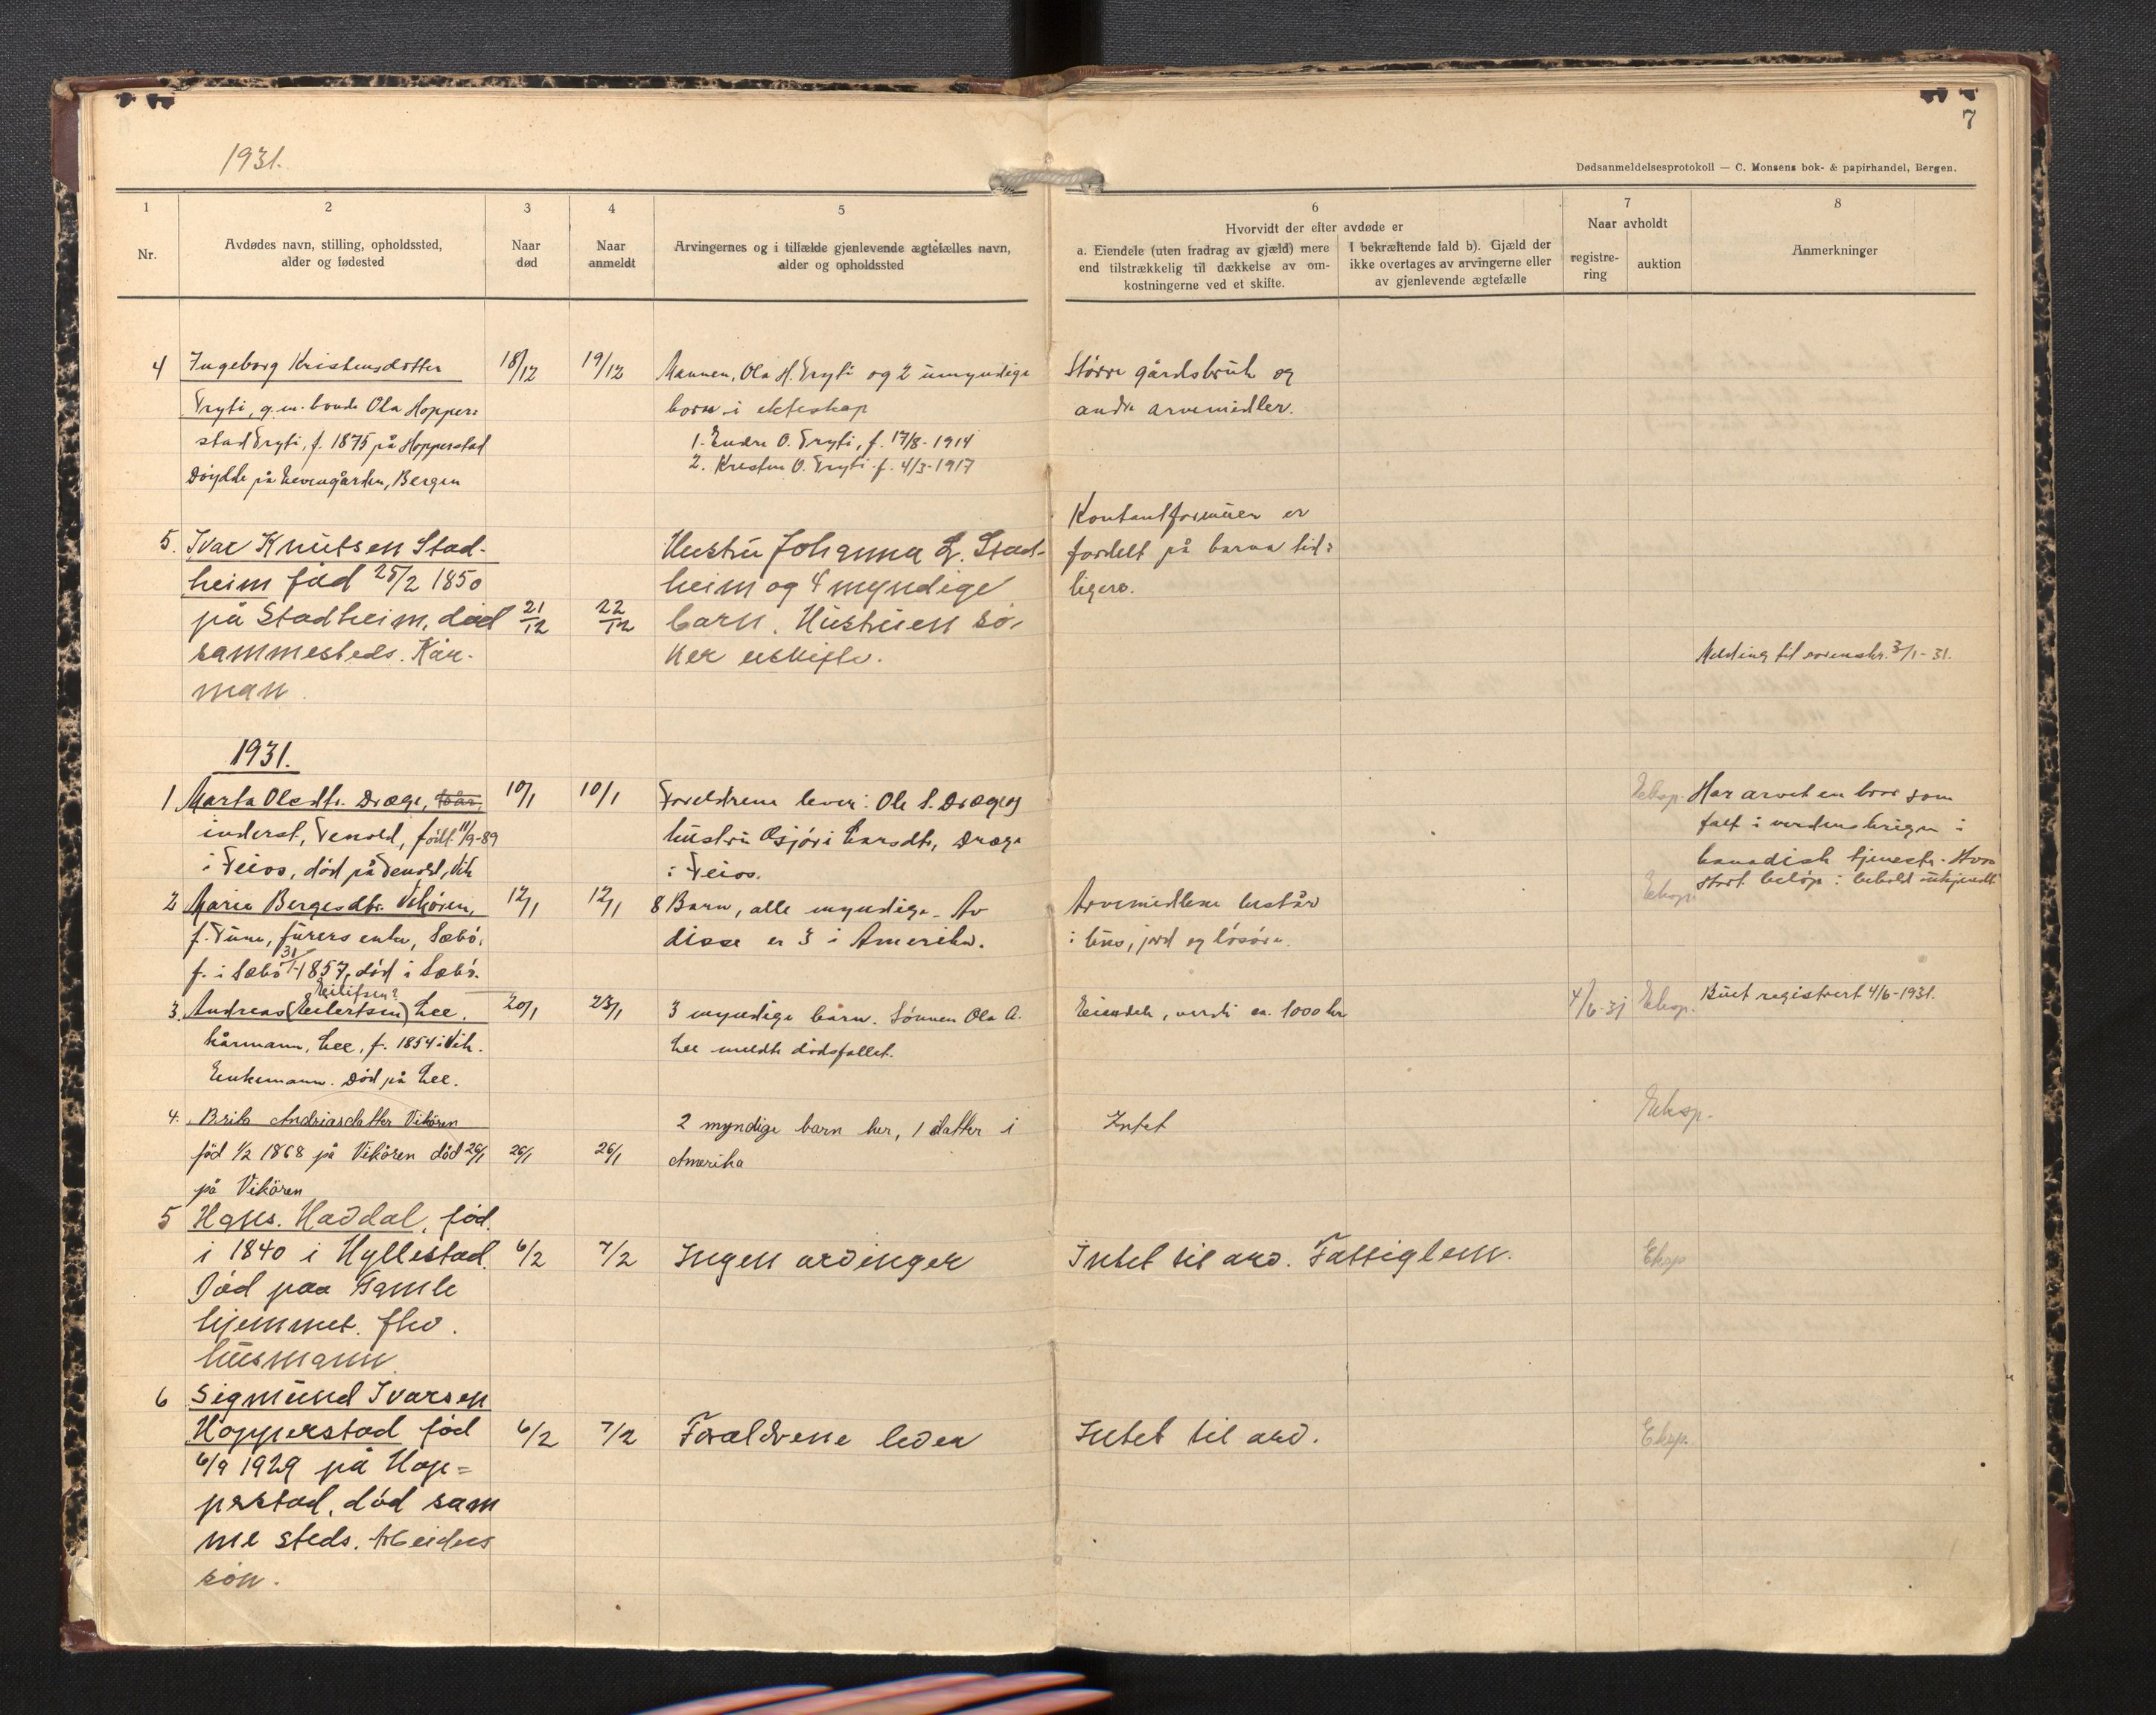 7
1931.
Dødsanmeldelsesprotokoll — C. Monsens bok- & papirhandel, Bergen.
1
2
3
4
5
6
7
8
Nr.
Avdødes navn, stilling, opholdssted,
alder og fødested
Naar
død
Naar
anmeldt
Arvingernes og i tilfælde gjenlevende ægtefælles navn,
alder og opholdssted
Hvorvidt der efter avdøde er
a. Eiendele (uten fradrag av gjæld) mere
end tilstrækkelig til dækkelse av om-
kostningerne ved et skifte.
I bekræftende fald b). Gjæld der
ikke overtages av arvingerne eller
av gjenlevende ægtefælle
Naar avholdt
registre-
ring
auktion
Anmerkninger
4 Ingeborg Kristensdotter 18/12 19/12 Mannen, Ola H. Tryti og 2 umyndige Større gårdsbruk og
Tryti, g.m. bonde Ola Hopper= born i ekteskap andre arvemidler.
stad Tryti, f. 1875 på Hopperstad 1. Endre O. Tryti, f. 17/8-1914
2. Kristen O. Tryti f. 4/3-1917
Døydde på Bergen
Kontantformuen er
5. Ivar Knutsen Stad- Hustru Johanna L. Stad- fordelt på barna tid=
heim fød 25/2 1850 heim og 4 myndige ligere.
på Stadheim, død 21/12 22/12 barn. Hustruen sø-
sammesteds. Kår- ker uskifte. Melding til sorenskr. 3/1-31.
man.
1931.
1 Marta Olsdtr. Dræge, 10/1 10/1 Foreldrene lever: Ole S. Dræge og Eksp. Har arvet en bror som
inderst, Tenold, født 11/9-89 hustru Larsdtr, Dræge falt i verdenskrigen i
i Feios, død på Tenold, Vik i Feios. kanadisk tjeneste. Hvor
stort beløp i behold ukjendt
2 Marie Bergesdtr. Vikøren, 12/1 12/1 8 Barn, alle myndige. Av Arvemidlene består Eksp.
f. Tune, enke, Sæbø, disse er 3 i Amerika. i hus, jord og løsøre.
f. i Sæbø 31/1-1857, død i Sæbø.
Eilifsen?
3. Andreas (Eilertsen) Lee. 20/1 23/1 3 myndige barn. Sønnen Ola A. Eiendele, verdi ca. 1000 kr 4/6-31 Eksp. Buet registrert 4/6-1931.
kårmann, Lee, f. 1854 i Vik. Lee meldte dødsfallet.
Enkemann. Død på Lee.
4. Brita Andriasdatter Vikören 2 myndige barn her, 1 datter i Intet Eksp.
född 1/2 1868 på Vikören död 26/1 26/1 26/1 Amerika
på Vikören
5 Hans. Haddal, fød.
i 1840 i Hyllestad. 6/2 7/2 Ingen arvinger Intet til arv. Fattiglem. Eksp
Død paa Gamle
hjemmet. fhv.
husmann
6 Sigmund Ivarsen
Hopperstad fød 6/2 7/2 Foreldrene lever Intet til arv. Eksp.
6/9 1929 på Hop=
perstad, død sam
me steds. Arbeiders
søn.